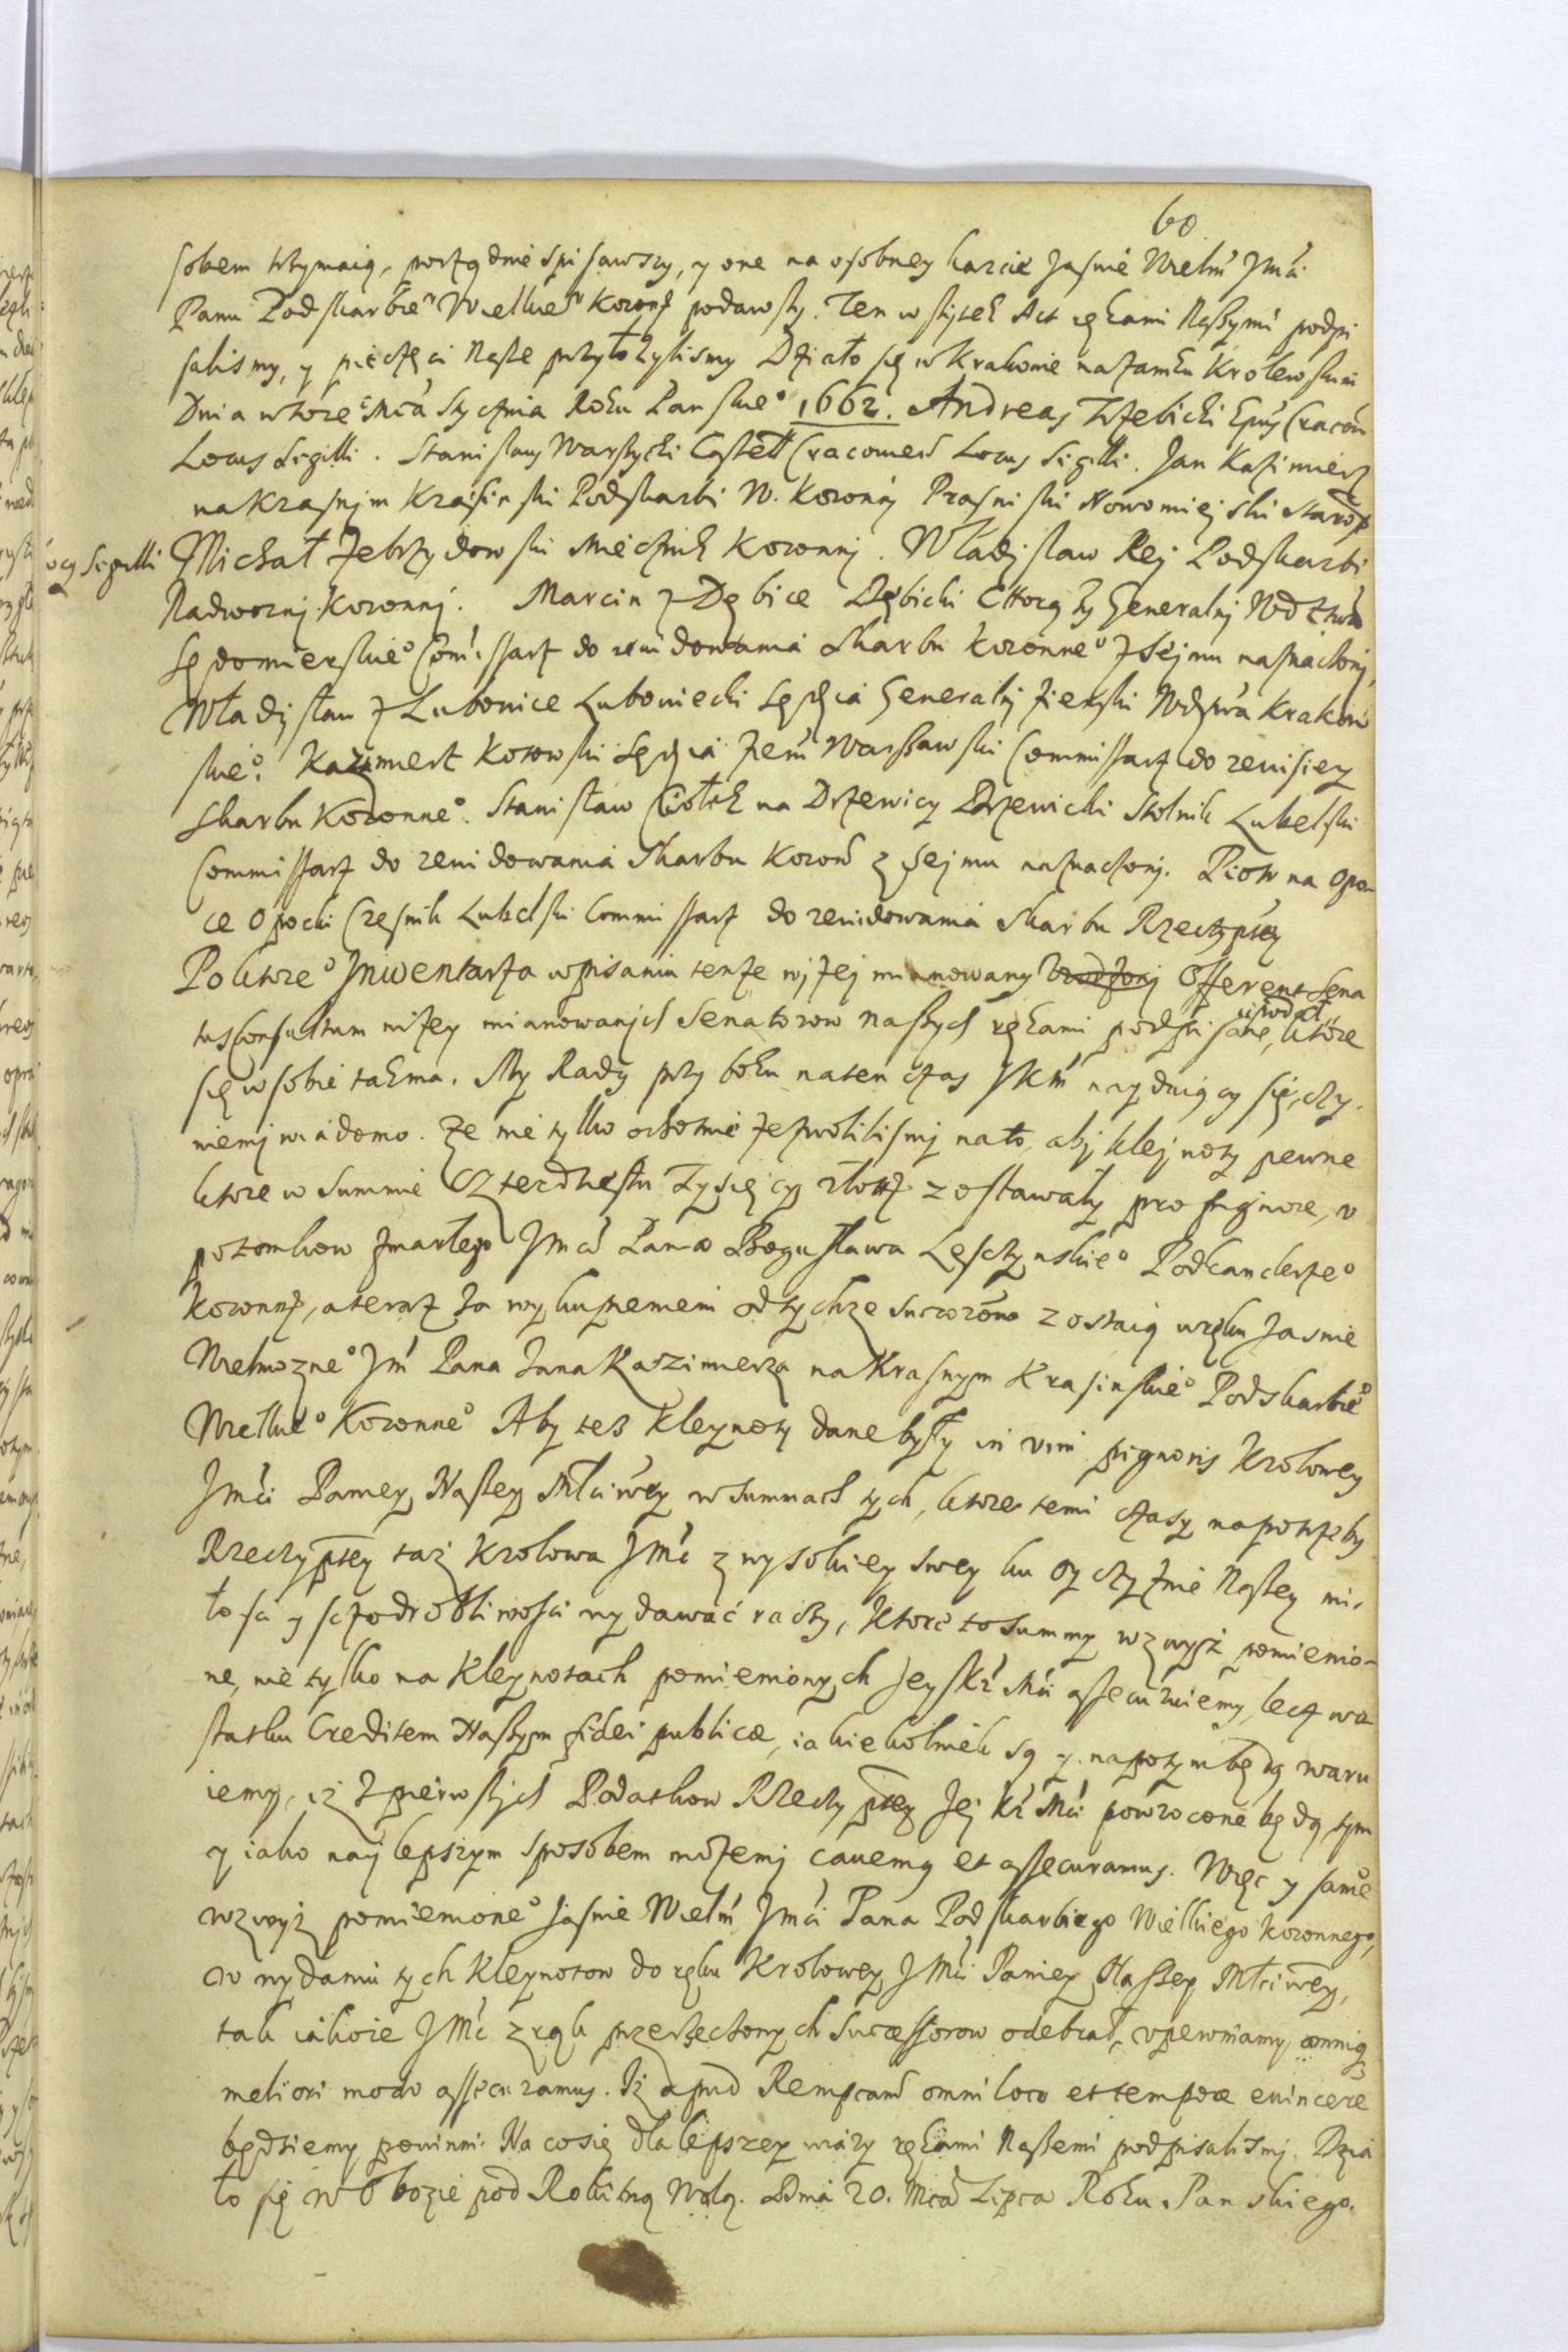 60
sobem trzymaią, porządnie spisawszy, y one na osobney karcie Jasnie Wielm̃ Jmći
Panu Podskarbie͂ᵘ Wielkie͂ᵘ Koronę podawszy. Ten wszytek Act rękami Naszymi podpi
salismy, y pieczęci Nasze przyłozylismy Działo się w Krakowie na Zamku Krolewskim
Dnia wtore° Mca Stycznia Roku Panskie° 1662. Andreas Trzebicki Epus Cracoũ
Locus Sigilli. Stanislaus Warszycki Castell Cracoviens Locus Sigilli. Jan Kazimierz
na Krasnym Krasinski Podskarbi W. Koronny Prasniski Nowomiejski Starosta
Locus Sigilli Michał Zebrzydowski Miecznik Koronny. Władysław Rej Podskarbi
Nadworny Koronny. Marcin z Dębice Dębicki Chorązy Generalny Wdztwa
Sędomierskie° Comissarz do rewidowania Skarbu Koronne° z Sejmu naznaczony,
Władysław z Lubowice Lubowiecki Sędzia Generalny Ziemski Wdztwa Krakow
skie°. Kazimierz Kotowski Sędzia Zem̃ Warszawski Commissarz do rewisiey
Skarbu Koronne°. Stanisław Ciołek na Drzewicy Drzewicki Stolnik Lubelski
Commissarz do rewidowania Skarbu Koroñ z Sejmu naznaczony. Piotr na Opo-
ce Opocki Czesnik Lubelski Commissarz do rewidowania Skarbu Rzeczyptey
Po ktore° Inwentarza wpisaniu tenze wyzej mianowany Offerent Sena
tusconsultum nizey mianowanych Senatorow naszych rękami podpisane, podał ktore
się w sobie tak ma. My Rady przy boku na ten czas JKM nayduiący się, czy-
niemy wiadomo. Ze nie tylko ochotnie zezwolilismy na to, aby klejnoty pewne
ktore w summie Czterdziestu Tysięcy złotych zostawały pro pignore, v
potomkow zmarłego Jmci Pana Bogusława Lesczynskie° Podcanclerze°
Koronnę, a teraz za wykupieniem od tychze Successorow zostaią w ręku Jasnie
Wielmozne° Jm̃ Pana Jana Kazimierza na Krasnym Krasinskie° Podskarbie°
Wielkie° Koronne° Aby tesz kleynoty dane były in vim pignoris Krolowey
Jmći Paniey Naszey Mciwey w summach tych, ktore temi czasy na potrzeby
Rzeczyptey taz Krolowa JMć z wysokiey swey ku Oyczyznie Naszey mi-
łosci y sczodrobliwosci wydawać raczy, Ktore to summy wzwysz pomienio-
ne, nie tylko na Kleynotach pomienionych Jey Kr Mći assecuruiemy, lecz wo
statku Creditem Naszym fidei publicæ, iakiekolwiek są y napotym będą waru
iemy, iż z pierwszych Podatkow Rzeczyptey Jej Kr Mći powrocone będą tym
y iako naylepszym sposobem mozemy cauemus et assecuramus. Więc y same°
wzwyż pomienione° Jasnie Wielm̃ Jmći Pana Podskarbiego Wielkiego Koronnego,
w wydaniu tych Kleynotow do ręku Krolowey JMći Paniey Naszey Mciwey,
tak iakoie JMć z rąk przerzeczonych Successorow odebrał, vpewniamy, omniq
meliori modo assecuramus. Iż apud Rempcam omni loco et tempore euincere
będziemy powinni. Na co się dla lepszey wiary rękami Naszemi podpisalismy. Dzia
ło się w Obozie pod Rokitną Wolą. Dnia 20. Mca Lipca Roku Panskiego.